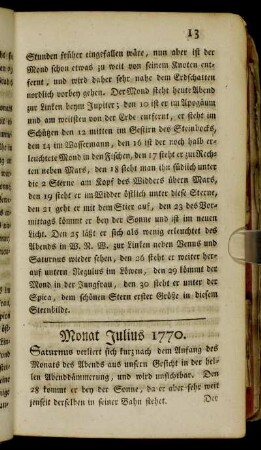 13
Stunden früher eingefallen wäre, nun aber ist der
Mond schon etwas zu weit von seinem Knoten ent-
fernt, und wird daher sehr nahe dem Erdschatten
nordlich vorbey gehen. Der Mond steht heute Abend
zur Linken beym Jupiter; den 10 ist er im Apogäum
und am weitsten von der Erde entfernt, er steht im
Schützen den 12 mitten im Gestirn des Steinbocks,
den 14 im Wassermann, den 16 ist der noch halb er-
leuchtete Mond in den Fischen, den 17 steht er zur Rech-
ten neben Mars, den 18 steht man ihn südlich unter
die 2 Sterne am Kopf des Widders übern Mars,
den 19 steht er im Widder östlich unter diese Sterne,
den 21 geht er mit dem Stier auf, den 23 des Vor-
mittags kömmt er bey der Sonne und ist im neuen
Licht. Den 25 läßt er sich als wenig erleuchtet des
Abends in W. N. W. zur Linken neben Venus und
Saturnus wieder sehen, den 26 steht er weiter her-
auf untern Regulus im Löwen, den 29 kömmt der
Mond in der Jungfrau, den 30 steht er unter der
Spica, dem schönen Stern erster Größe in diesem
Sternbilde.
Monat Julius 1770.
Saturnus verliert sich kurz nach dem Anfang des
Monats des Abends aus unsern Gesicht in der hel-
len Abenddämmerung, und wird unsichtbar. Den
28 kommt er bey der Sonne, da er aber sehr weit
jenseit derselben in seiner Bahn stehet.
Der